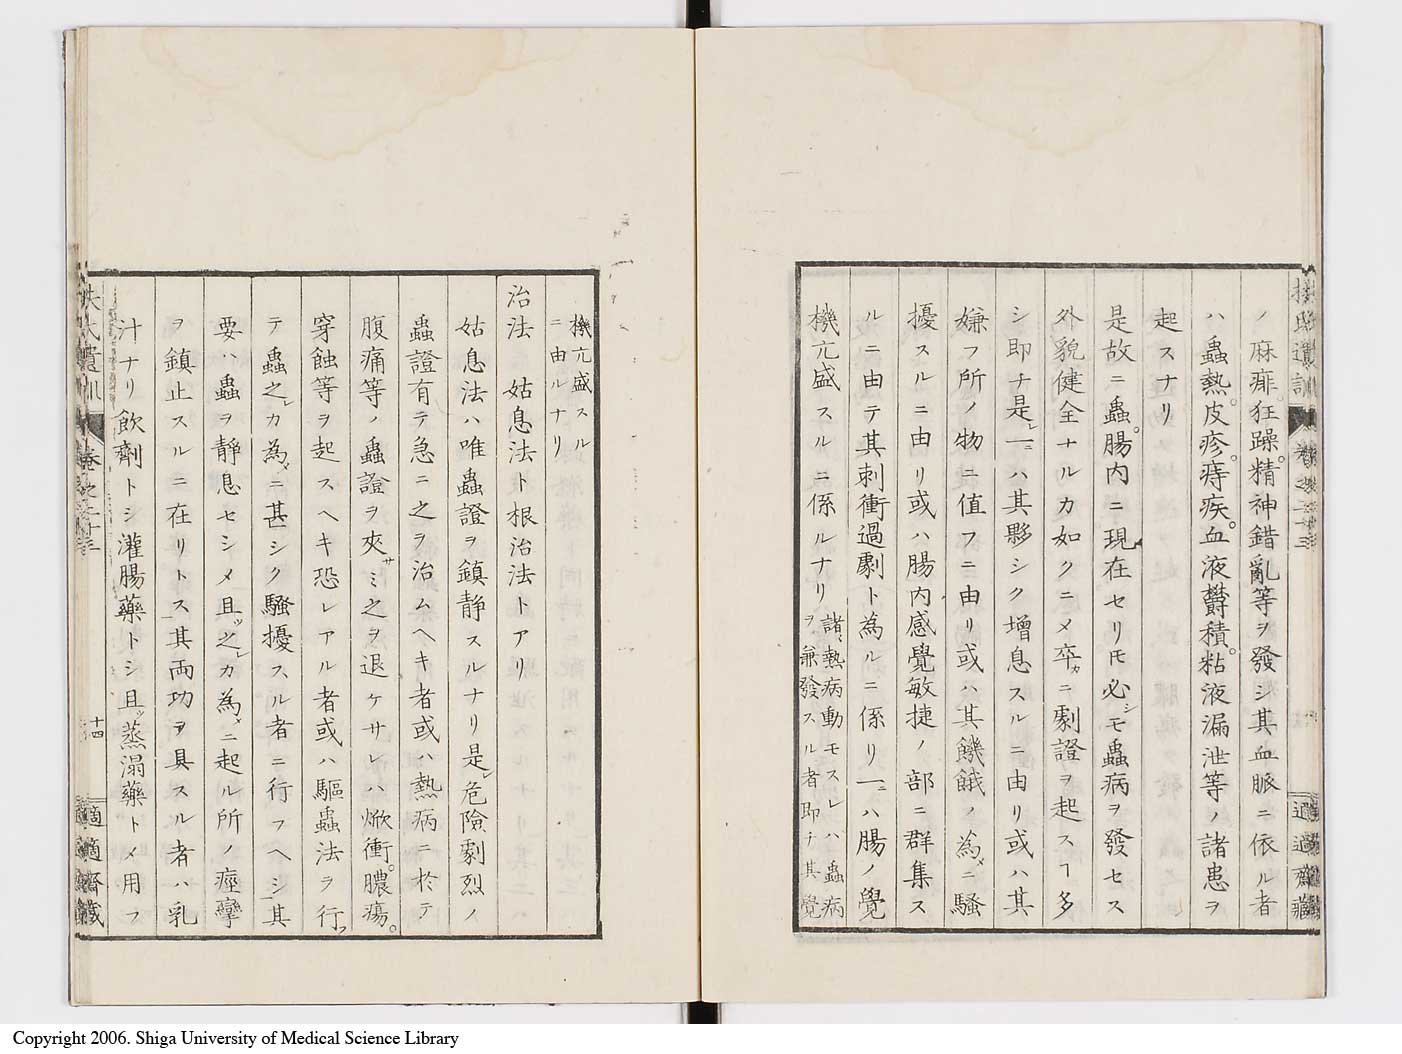 ノ麻痱。狂躁。精神錯亂等ヲ發シ其血脈ニ依ル者
ハ蟲熱。皮疹。痔疾。血液欝積。粘液漏泄等ノ諸患ヲ
起スナリ
是故ニ蟲。腸内ニ現在セリ𪜈必シモ蟲病ヲ發セス
外貌健全ナルカ如クニメ卒カニ劇證ヲ起スヿ多
シ即チ是レ一ニハ其夥シク増息スルニ由リ或ハ其
嫌フ所ノ物ニ値フニ由リ或ハ其饑餓ノ為メニ騒
擾スルニ由リ或ハ腸内感覺敏捷ノ部ニ群集ス
ルニ由テ其刺衝過劇ト為ルニ係リ一ニハ腸ノ覺
機亢盛スルニ係ルナリ諸熱病動モスレハ蟲病
ヲ兼發スル者即チ其覺
機亢盛スル
ニ由ルナリ
治法 姑息法ト根治法トアリ
姑息法ハ唯蟲證ヲ鎮静スルナリ是レ危險劇烈ノ
蟲證有テ急ニ之ヲ治ムヘキ者或ハ熱病ニ於テ
腹痛等ノ蟲證ヲ夾サミ之ヲ退ケサレハ焮衝。膿瘍。
穿蝕等ヲ起スヘキ恐レアル者或ハ驅蟲法ヲ行フ
テ蟲之レカ為メニ甚シク騒擾スル者ニ行フヘシ其
要ハ蟲ヲ静息セシメ且ツ之レカ為メニ起ル所ノ痙攣
ヲ鎮止スルニ在リトス其両功ヲ具スル者ハ乳
汁ナリ飲劑トシ灌腸藥トシ且ツ蒸溻藥トメ用フ
十四
適適齋藏
適適齋藏
Copyright 2006. Shiga University of Medical Science Library